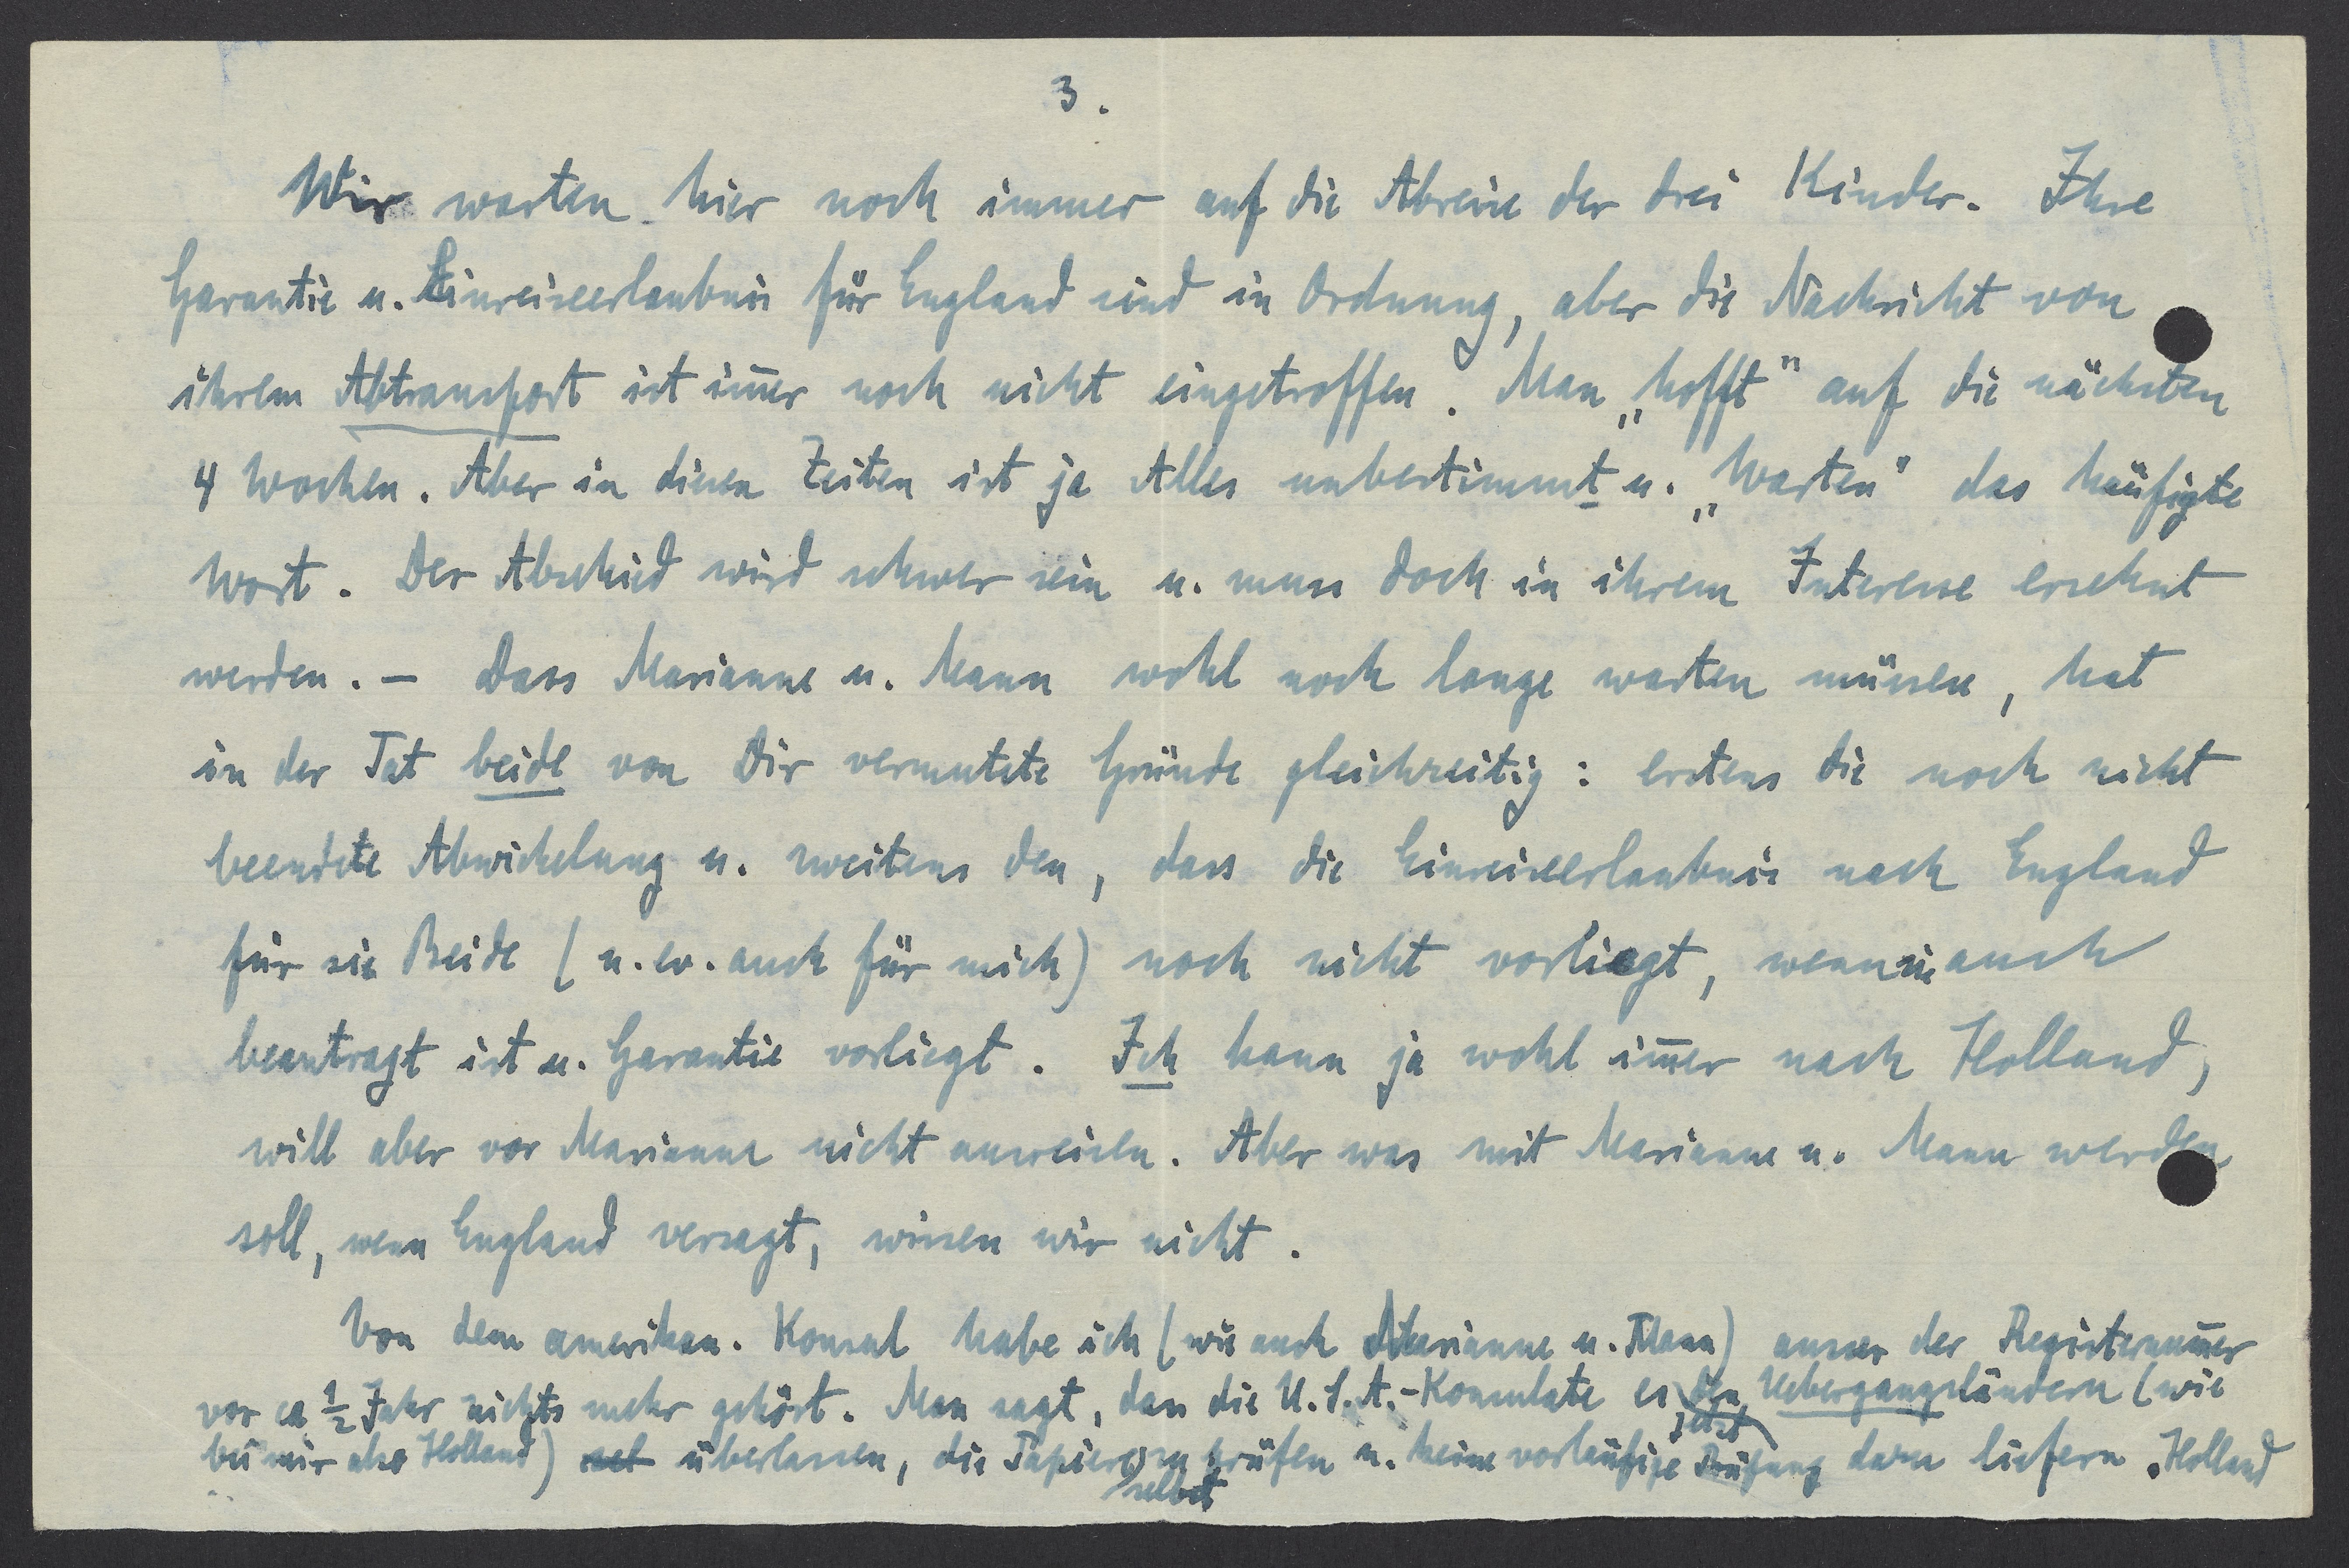 3.
Wir warten hier noch immer auf die Abreise der drei Kinder. Ihre
Garantie u. Einreiseerlaubnis für England sind in Ordnung, aber die Nachricht von
ihrem Abtransport ist im̅er noch nicht eingetroffen. Man „hofft" auf die nächsten
4 Wochen. Aber in diesen Zeiten ist ja Alles unbestimmt u. „Warten" das häufigte
Wort. Der Abschied wird schwer sein u. muss doch in ihrem Interesse ersehnt
werden. – Dass Marianne u. Mann wohl noch lange warten müssen, hat
in der Tat beide von Dir vermutete Gründe gleichzeitig: erstens die noch nicht
beendete Abwickelung u. zweitens den, dass die Einreiseerlaubnis nach England
für sie Beide (u. ev. auch für mich) noch nicht vorliegt, wenn sie auch
beantragt ist u. Garantie vorliegt. Ich kann ja wohl im̅er nach Holland,
will aber vor Marianne nicht ausreisen. Aber was mit Marianne u. Mann werden
soll, wenn England versagt, wissen wir nicht.
Von dem amerikan. Konsul habe ich (wie auch Marianne u. Mann) ausser der Registernum̅er
vor ca ½ Jahr nichts mehr gehört. Man sagt, dass die U.S.A.-Konsulate es jetzt den Uebergangsländern (wie
bei mir also Holland) überlassen, die Papiere selbst zu prüfen u. keine vorläufige Prüfung dazu liefern. Holland